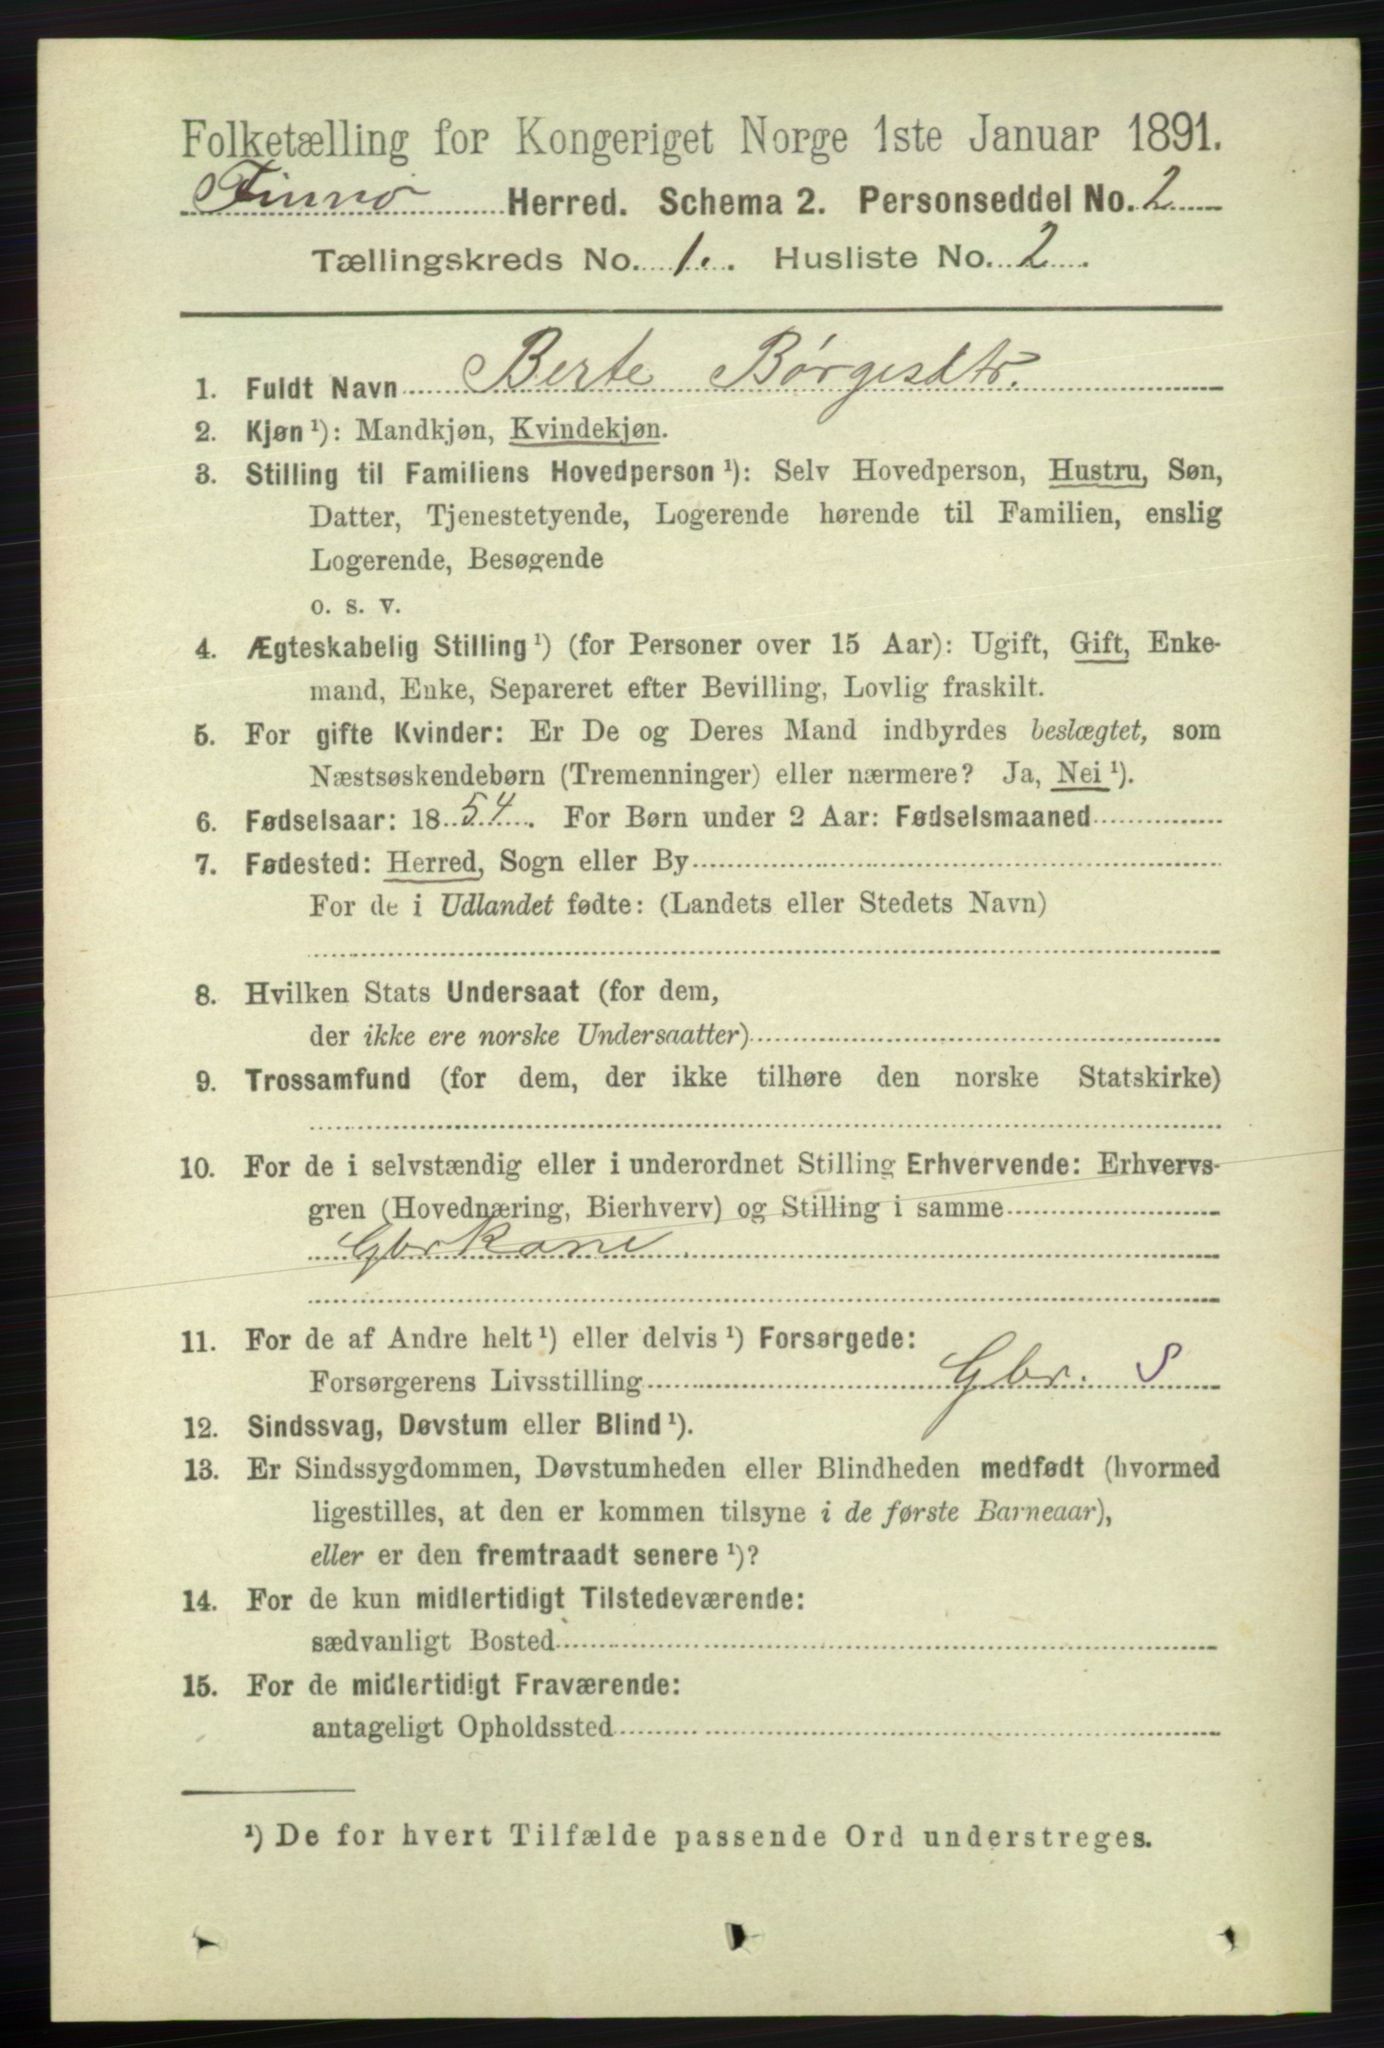 Folketælling for Kongeriget Norge 1ste Januar 1891.
Finnø Herred. Schema 2. Personseddel No. 2
Tællingskreds No. 1. Husliste No. 2
1. Fuldt Navn Berte Børgesdtr.
2. Kjøn ¹): Mandkjøn, Kvindekjøn.
3. Stilling til Familiens Hovedperson ¹): Selv Hovedperson, Hustru, Søn,
Datter, Tjenestetyende, Logerende hørende til Familien, enslig
Logerende, Besøgende
o. s. v.
4. Ægteskabelig Stilling ¹) (for Personer over 15 Aar): Ugift, Gift, Enke-
mand, Enke, Separeret efter Bevilling, Lovlig fraskilt.
5. For gifte Kvinder: Er De og Deres Mand indbyrdes beslægtet, som
Næstsøskendebørn (Tremenninger) eller nærmere? Ja, Nei ¹).
6. Fødselsaar: 1854. For Børn under 2 Aar: Fødselsmaaned
7. Fødested: Herred, Sogn eller By
For de i Udlandet fødte: (Landets eller Stedets Navn)
8. Hvilken Stats Undersaat (for dem,
der ikke ere norske Undersaatter)
9. Trossamfund (for dem, der ikke tilhøre den norske Statskirke)
10. For de i selvstændig eller i underordnet Stilling Erhvervende: Erhvervs-
gren (Hovednæring, Bierhverv) og Stilling i samme
Gbrkone
11. For de af Andre helt ¹) eller delvis ¹) Forsørgede:
Forsørgerens Livsstilling Gbr. S
12. Sindssvag, Døvstum eller Blind ¹).
13. Er Sindssygdommen, Døvstumheden eller Blindheden medfødt (hvormed
ligestilles, at den er kommen tilsyne i de første Barneaar),
eller er den fremtraadt senere ¹)?
14. For de kun midlertidigt Tilstedeværende:
sædvanligt Bosted
15. For de midlertidigt Fraværende:
antageligt Opholdssted
¹) De for hvert Tilfælde passende Ord understreges.